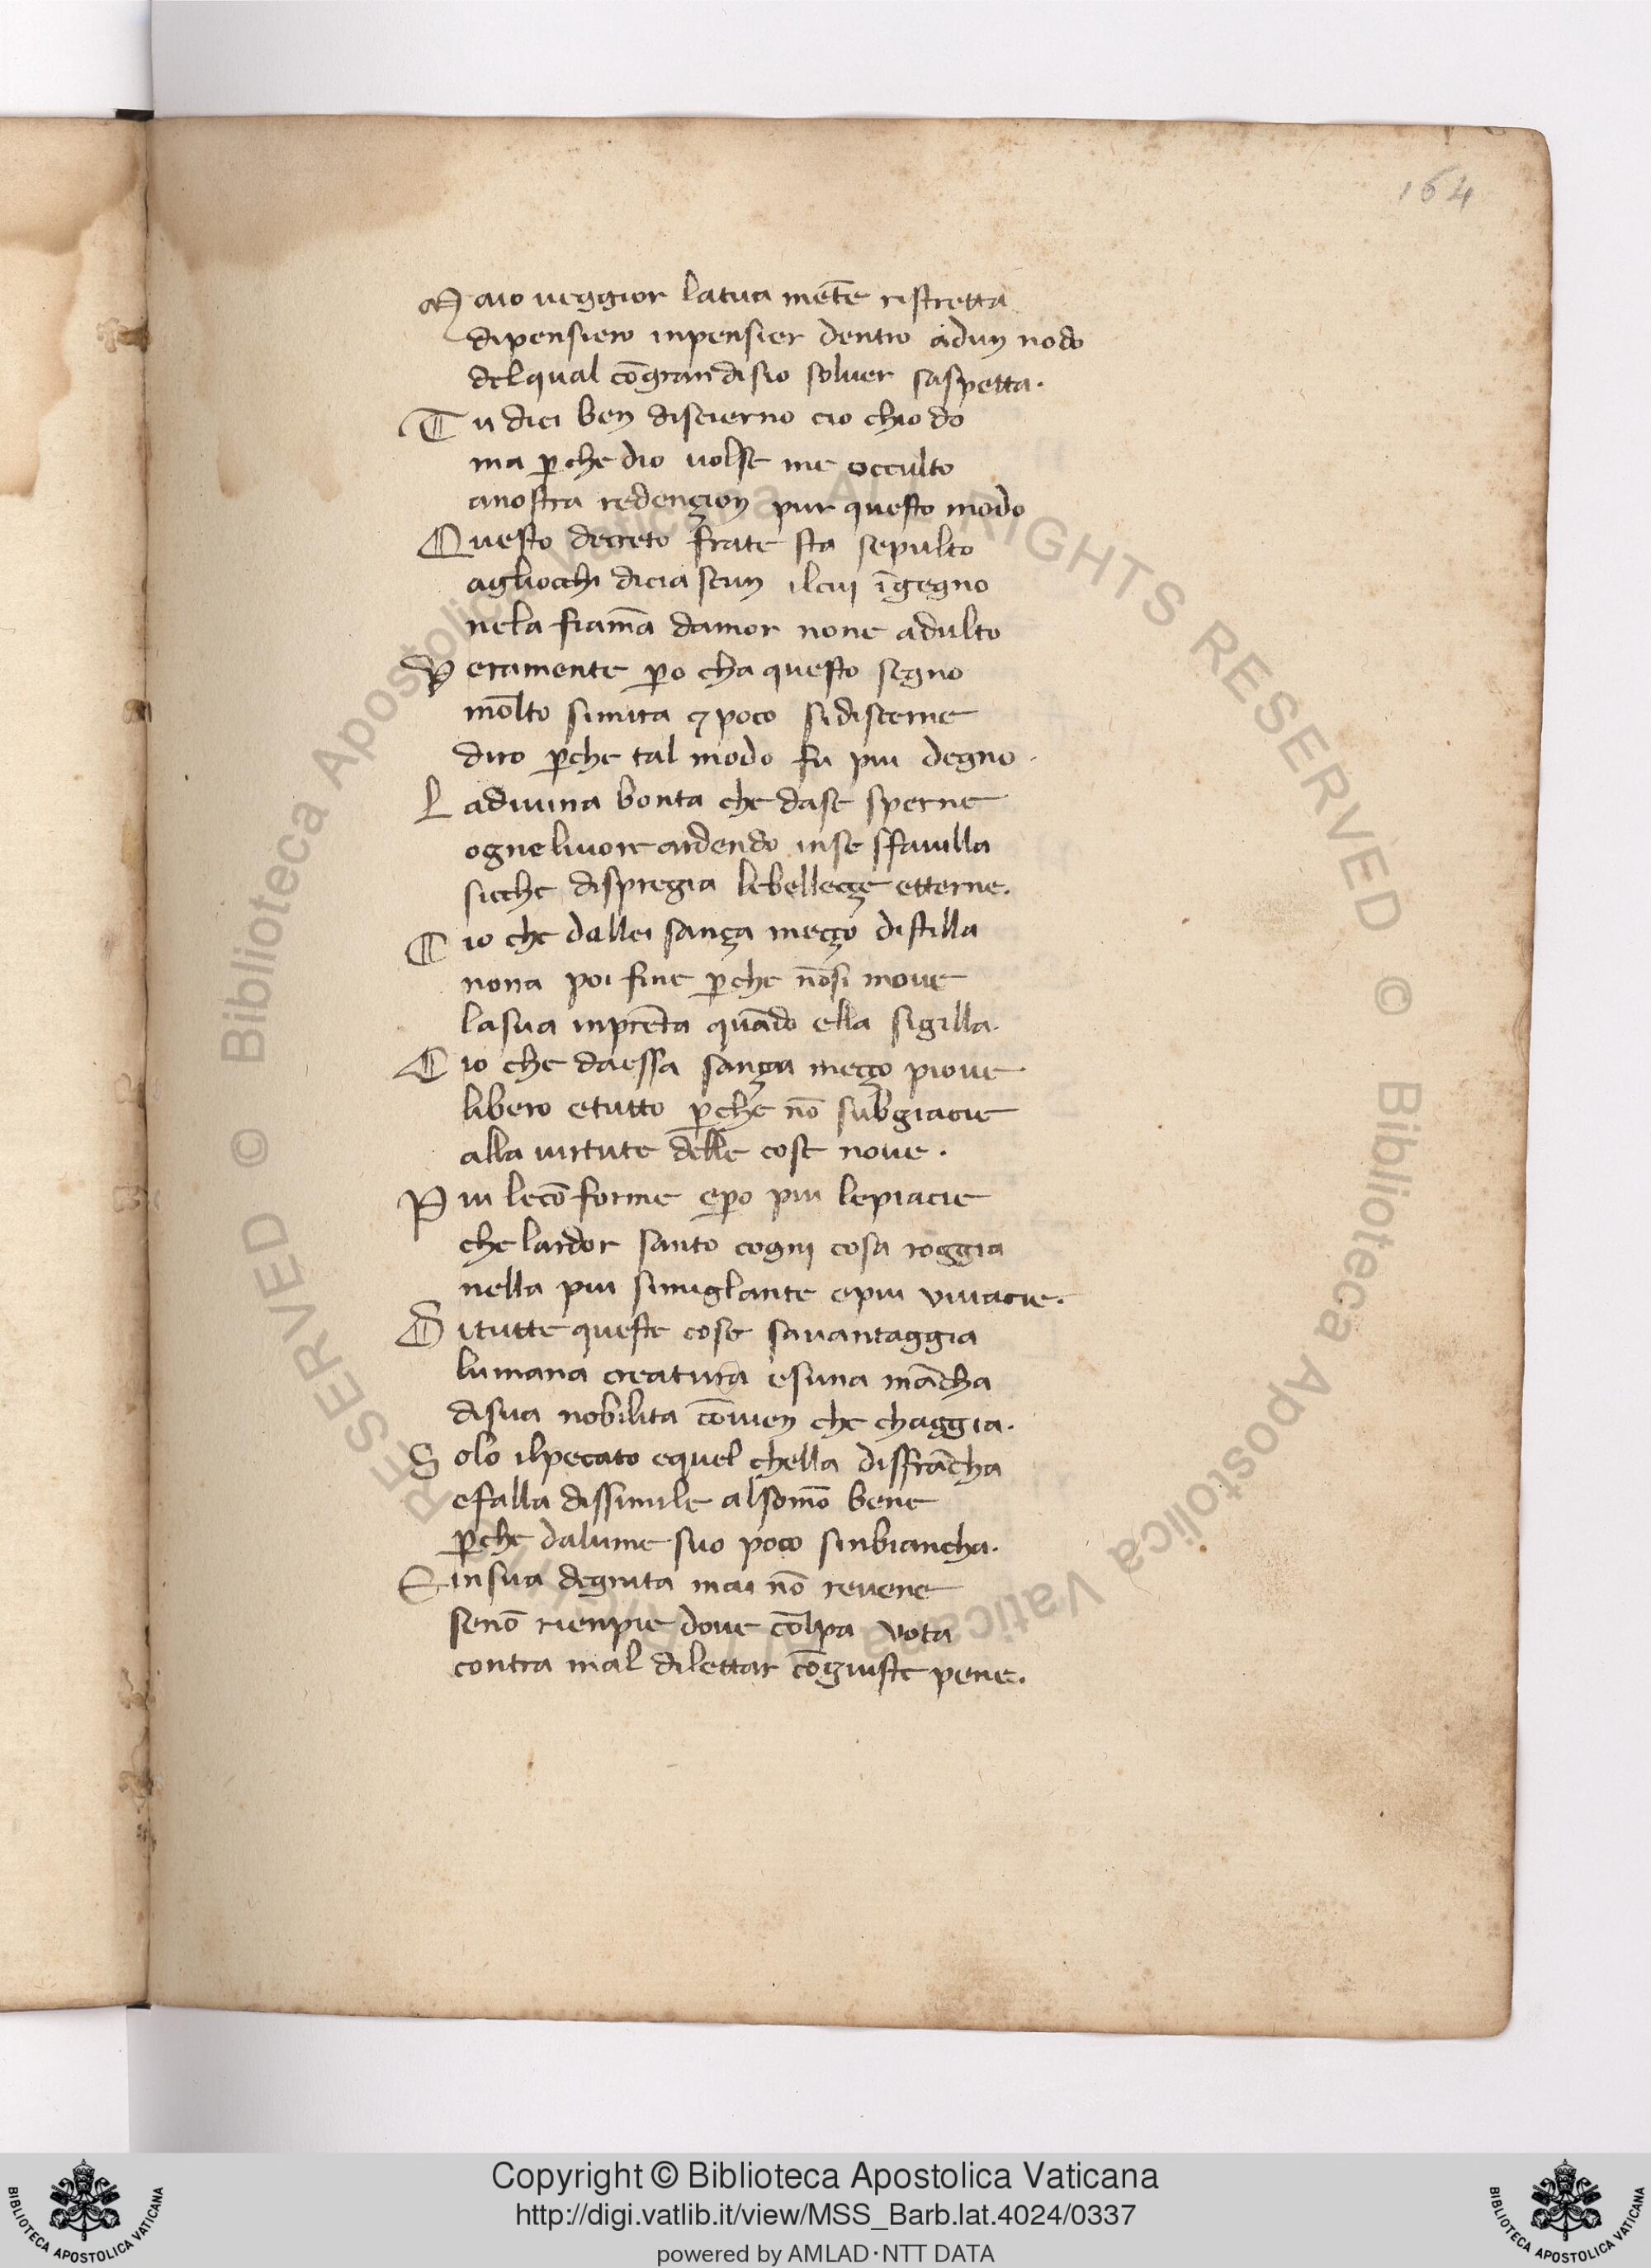 164
Maio veggior latua mēte ristretta
dipensiero inpensier dentro adun nodo
delqual cōgrandisio solver saspetta.
Tu dici ben discierno cio chio do
ma ꝑche dio volse me occulto
anostra redençion pur questo modo
Questo decreto frate sta sepulto
agliocchi diciascun ilcui īgegno
nela fiāma damor none adulto
Veramente ꝑo cha questo segno
molto simira ⁊ poco sidiscerne
diro ꝑche tal modo fu piu degno.
Ladivina bonta che dase sperne
ogne livore ardendo inse sfavilla
sicche dispregia lebelleççe etterne.
Cio che dallei sança meçço distilla
nona poi fine ꝑche nōsi move
lasua inprēta quādo ella sigilla.
Cio che daessa sança meçço piove
libero etutto ꝑche nō subgiacie
alla virtute delle cose nove.
Piu lecōforme eꝑo piu lepiacie
che lardor santo cogni cosa roggia
nella piu simiglante epiu vivacie.
Ditutte queste cose savantaggia
lumana creatura esuna mācha
disua nobilita cōvien che chaggia.
Solo ilpecato equel chella disfrācha
efalla dissimile alsomō bene
ꝑche dalume suo poco sinbiancha.
Einsua degnita mai nō revene
senō rienpie dove colpa vota
contra mal dilettar cōgiuste pene.
Biblioteca Apostolica Vaticana ALL RIGHTS RESERVED © Biblioteca Apostolica Vaticana ALL RIGHTS RESERVED ©
Copyright © Biblioteca Apostolica Vaticana
http://digi.vatlib.it/view/MSS_Barb.lat.4024/0337
powered by AMLAD·NTT DATA
BIBLIOTECA APOSTOLICA VATICANA
BIBLIOTECA APOSTOLICA VATICANA